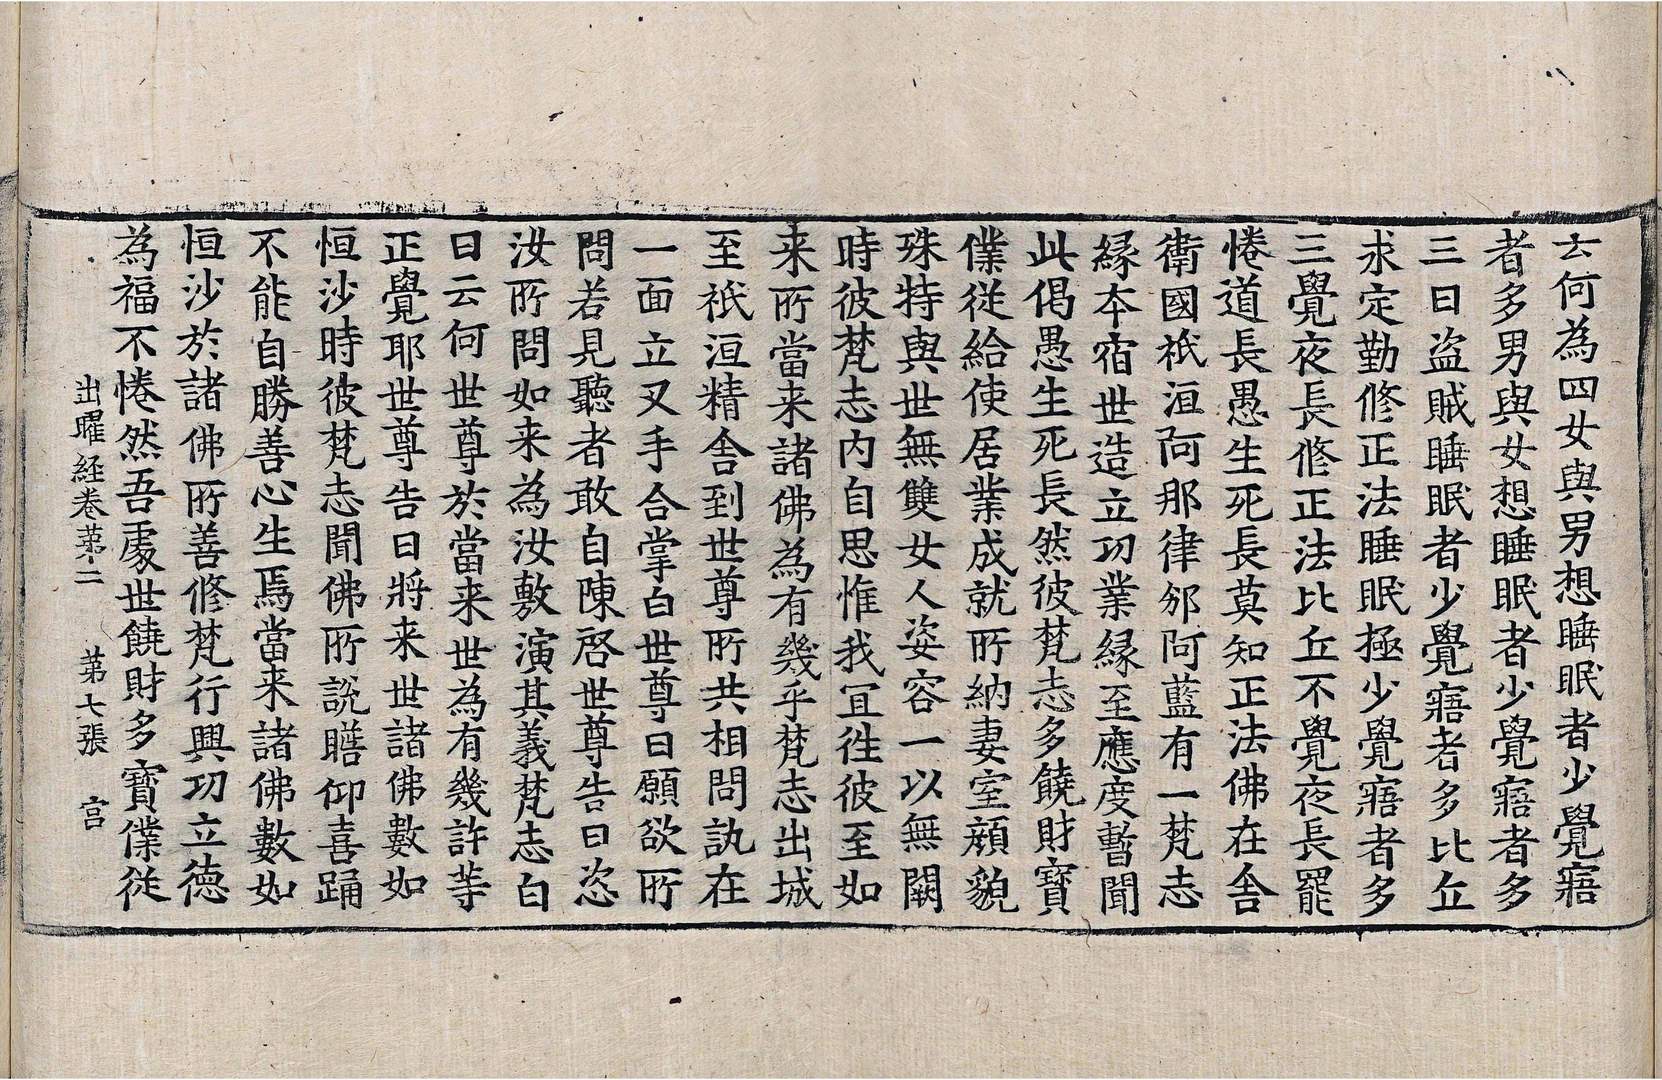 云何為四女與男想睡眠者少覺寤
者多男與女想睡眠者少覺寤者多
三曰盗賊睡眠者少覺寤者多比丘
求定勤修正法睡眠極少覺寤者多
三覺夜長修正法比丘不覺夜長罷
惓道長愚生死長莫知正法佛在舍
衛國祇洹阿那律邠阿藍有一梵志
緣本宿世造立功業緣至應度暫聞
此偈愚生死長然彼梵志多饒財寶
僕從給使居業成就所納妻室顏貌
殊特與世無雙女人姿容一以無闕
時彼梵志内自思惟我宜徃彼至如
来所當来諸佛為有幾乎梵志出城
至祇洹精舍到世尊所共相問訊在
一面立叉手合掌白世尊曰願欲所
問若見聽者敢自陳啓世尊告曰恣
汝所問如来為汝敷演其義梵志白
曰云何世尊於當来世為有幾許等
正覺耶世尊告曰將来世諸佛數如
恒沙時彼梵志聞佛所說瞻仰喜踊
不能自勝善心生焉當来諸佛數如
恒沙於諸佛所善修梵行興功立德
為福不惓然吾處世饒財多寶僕從
出曜経卷苐二　苐七張　宫